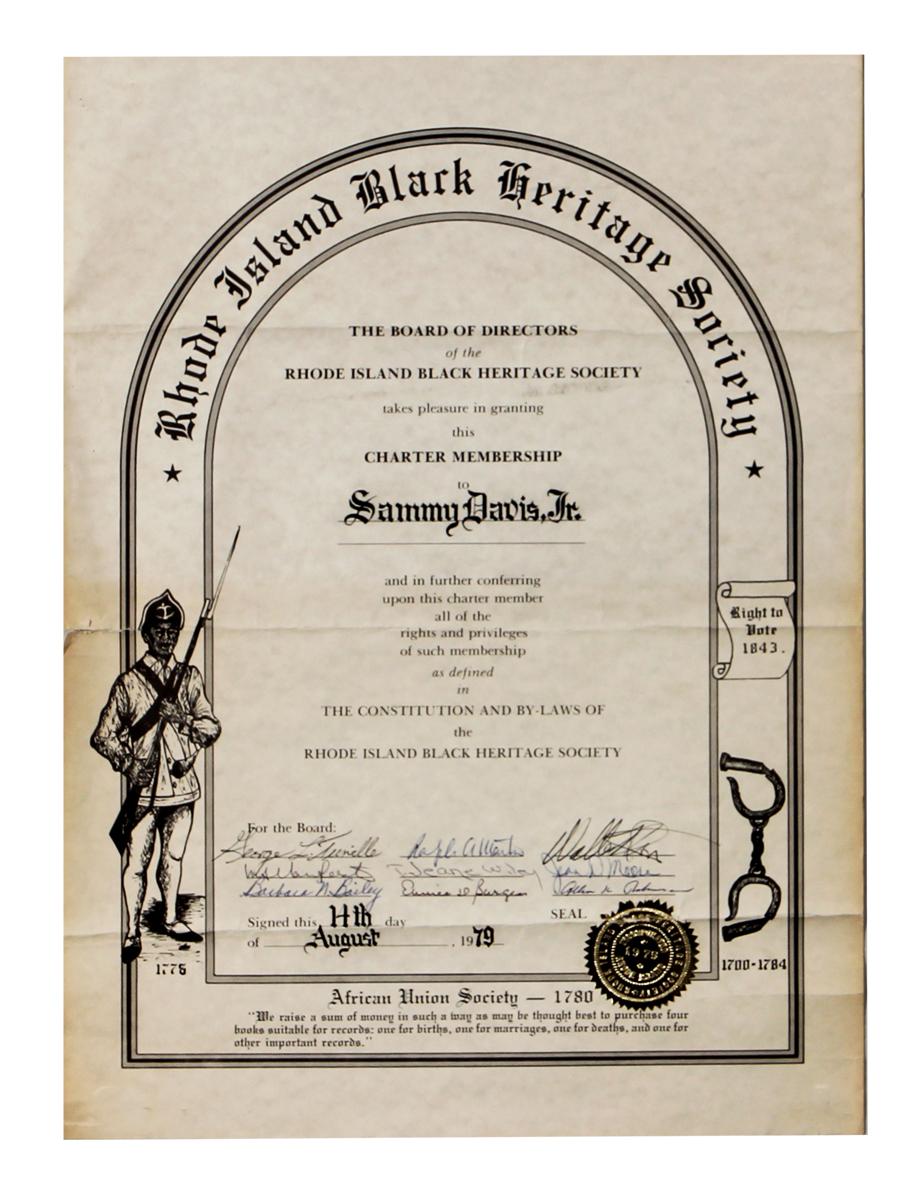 Rhode Island Black Heritage Society
THE BOARD OF DIRECTORS
of the
RHODE ISLAND BLACK HERITAGE SOCIETY
takes pleasure in granting
this
CHARTER MEMBERSHIP
to
Sammy Davis, Jr.
and in further conferring
upon this charter member
all of the
rights and privileges
of such membership
as defined
in
THE CONSTITUTION AND BY-LAWS OF
the
RHODE ISLAND BLACK HERITAGE SOCIETY
Right to
Vote
1843.
For the Board:
Barbara N. Bailey
Signed this 14th day
of August, 1979
SEAL
1979
1775
1700-1784
African Union Society — 1780
"We raise a sum of money in such a way as may be thought best to purchase four
books suitable for records: one for births, one for marriages, one for deaths, and one for
other important records."